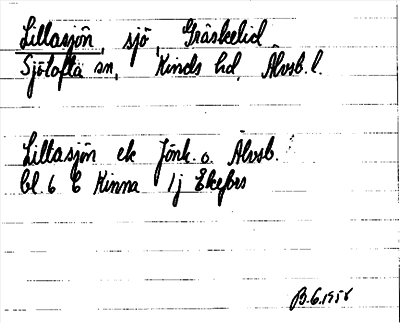 Lillasjön, sjö, Gräskelid
Sjötofta sn, Kinds hd, Älvsb. l.
Lillasjön ek Jönk. o. Älvsb.
bl. 6 C Kinna 1j Ekefors
B.G. 1958